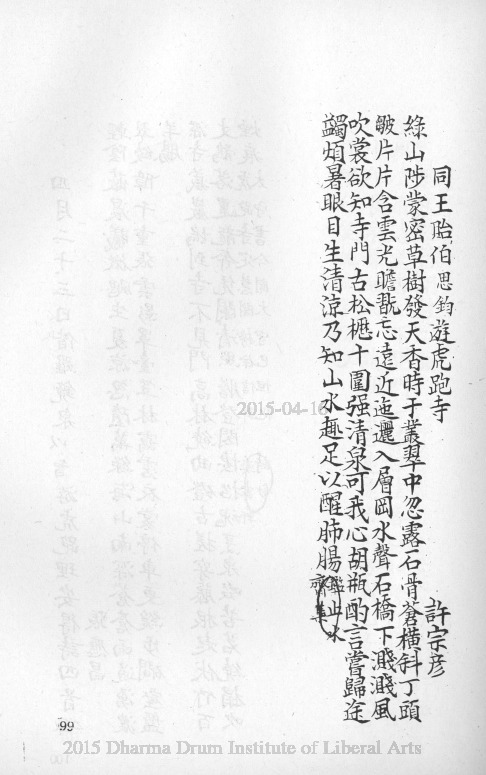 同王貽伯思鈞遊虎跑寺
許宗彥
緣山陟蒙密草樹發天香時于叢翠中忽露石骨蒼橫斜丁頭
皴片片含雲光瞻翫忘遠近迤邐入層岡水聲石橋下濺濺風
吹裳欲知寺門古松樾十圍强清泉可我心胡瓶酌言嘗歸途
蠲煩暑眼目生清涼乃知山水趣足以醒肺腸鑑止水齋集
99
2015-04-16
2015 Dharma Drum Institute of Liberal Arts